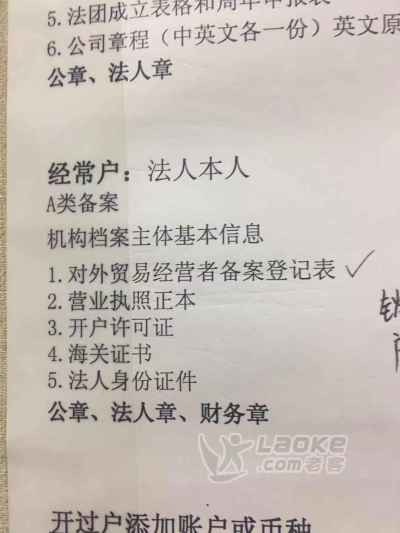 5. 法团成立表格和周年申报表
6. 公司章程（中英文各一份）英文原
公章、法人章
经常户：法人本人
A类备案
机构档案主体基本信息
1. 对外贸易经营者备案登记表 ✓
2. 营业执照正本
3. 开户许可证
4. 海关证书
5. 法人身份证件
公章、法人章、财务章
LAOKE
.com老客
开过户添加账户或币种